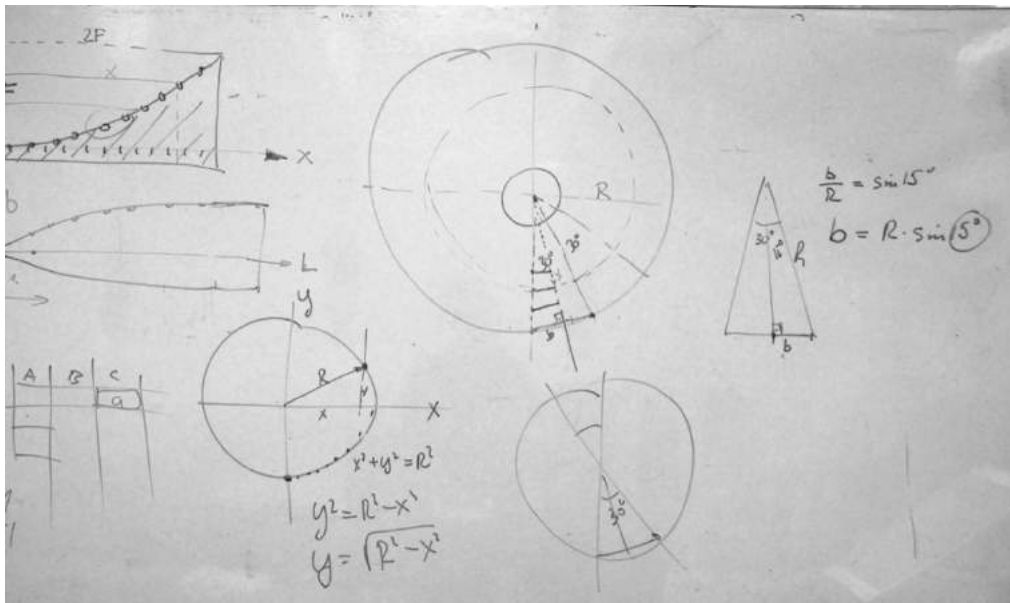 2F
x
x
b
L
A B C
a
y
R
x
y
x
x² + y² = R²
y² = R² - x²
y = √R² - x²
R
30°
b
30°
30°
R
b
b/R = sin 15°
b = R · sin 15°